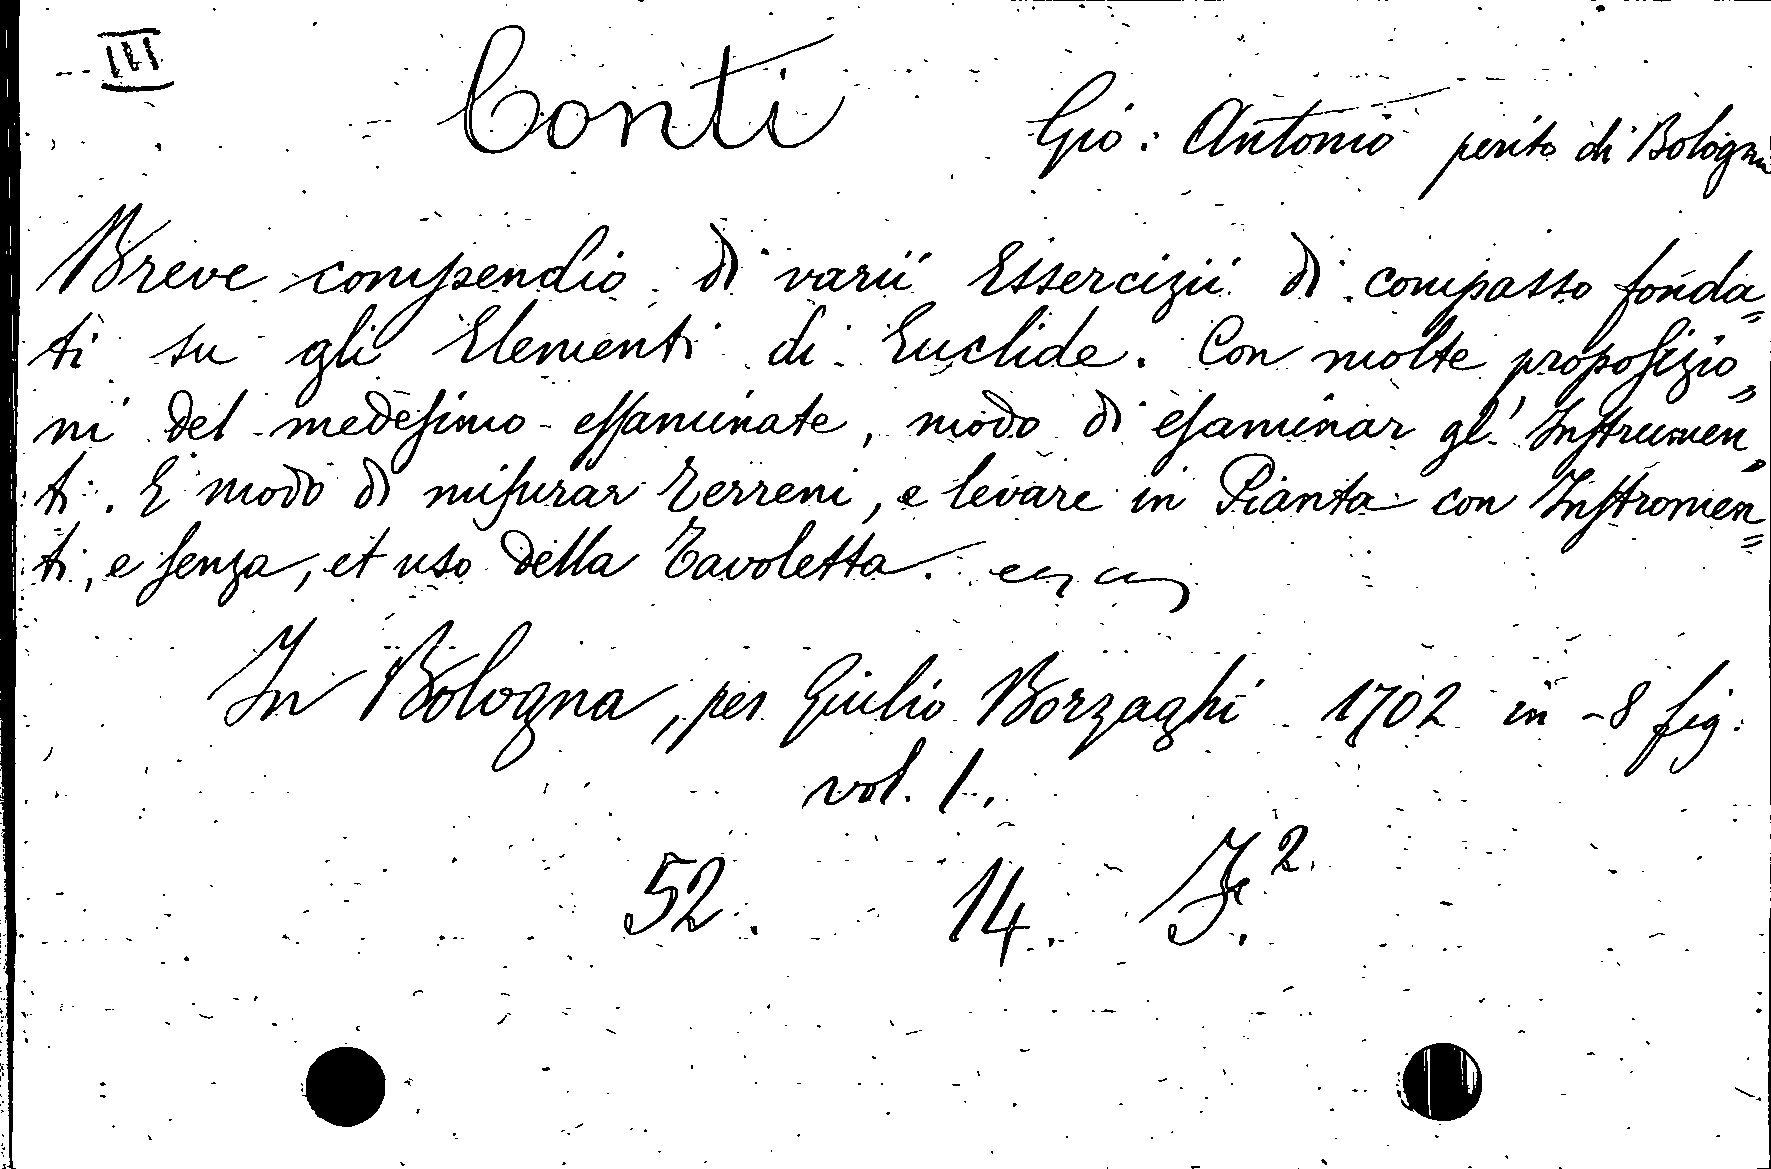 III
Conti Gio: Antonio perito di Bologna
Breve compendio di varii Essercizii di compasso fonda=
ti su gli Elementi di Euclide. Con molte propoſizio=
ni del medeſimo eſſaminate, modo di eſaminar gl' Inſtrumen=
ti. E modo di miſurar Terreni, e levare in Pianta con Inſtromen=
ti, e ſenza, et uso della Tavoletta.
In Bologna, per Giulio Borzaghi 1702 in -8 fig:
vol. 1.
52. 14. F.2.